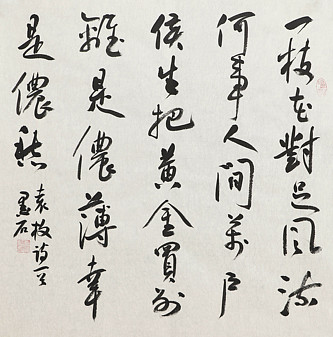 一枝花對足風流
何事人間萬戶
侯生把黃金買別
離是儂薄幸
是儂愁
袁枚詩一首
墨石